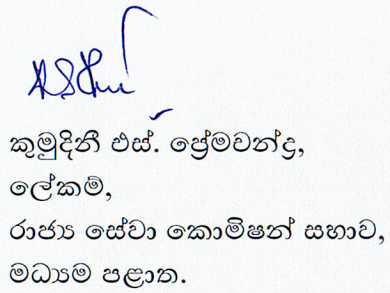 කුමුදිනී එස්. ප්‍රේමචන්ද්‍ර,
ලේකම්,
රාජ්‍ය සේවා කොමිෂන් සභාව,
මධ්‍යම පළාත.